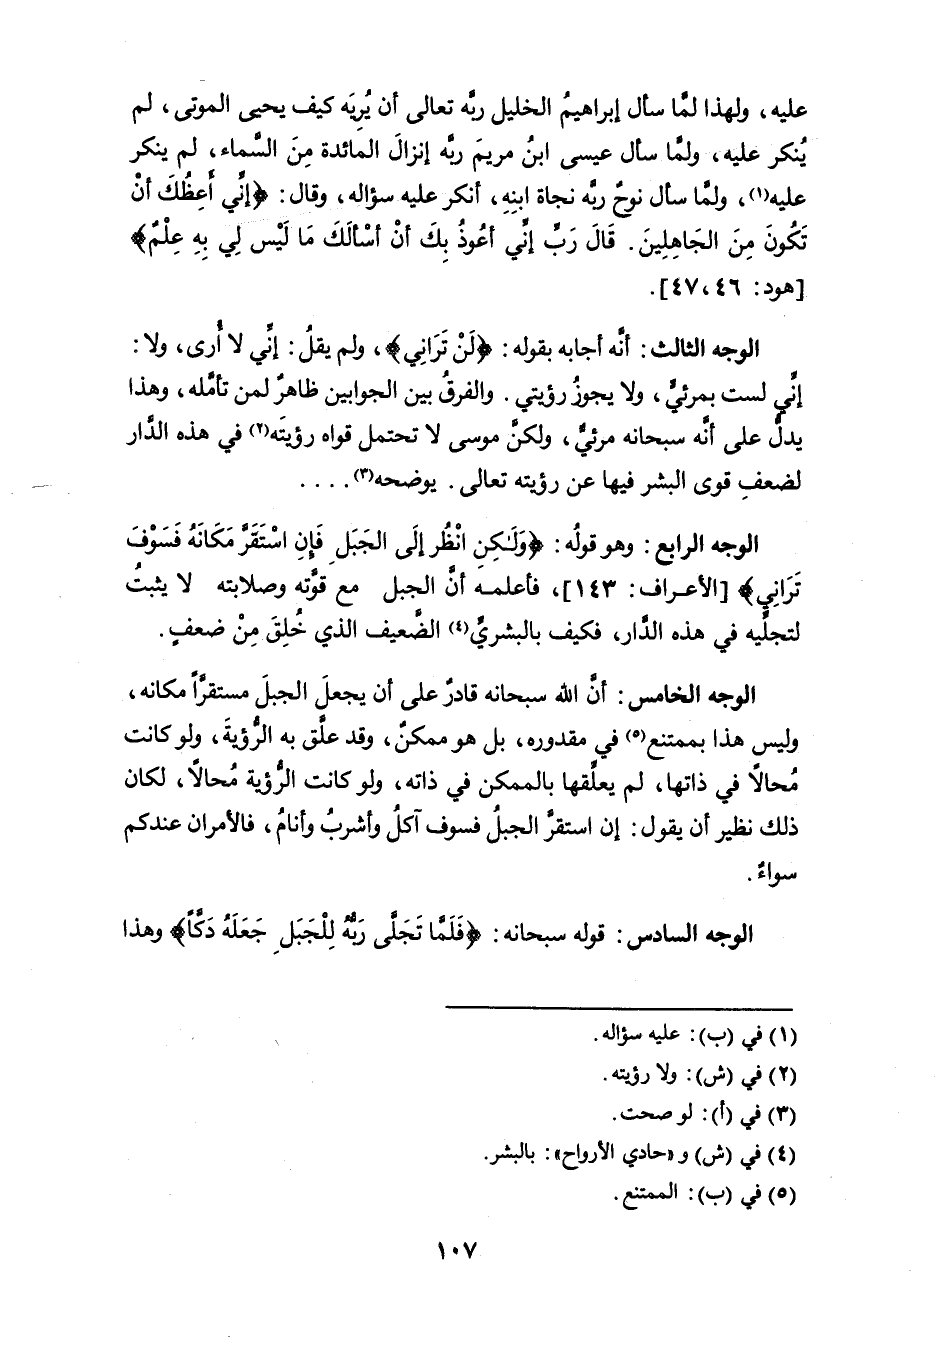 عليه، ولهذا لمَّا سأل إبراهيمُ الخليل ربَّه تعالى أن يُرِيَه كيف يحيي الموتى، لم
يُنكر عليه، ولمَّا سأل عيسى ابنُ مريمَ ربَّه إنزالَ المائدة مِنَ السَّماء، لم ينكر
عليه(١)، ولمَّا سأل نوحٌ ربَّه نجاة ابنِهِ، أنكر عليه سؤاله، وقال: ﴿إنِّي أَعِظُكَ أنْ
تَكُونَ مِنَ الجَاهِلِينَ. قَالَ رَبِّ إنِّي أعُوذُ بِكَ أنْ أسْألَكَ مَا لَيْس لِي بِهِ عِلْمٌ﴾
[هود: ٤٦، ٤٧].
الوجه الثالث: أنَّه أجابه بقوله: ﴿لَنْ تَرَانِي﴾، ولم يقلُ: إنِّي لا أُرى، ولا:
إنِّي لست بمرئيٍّ، ولا يجوزُ رؤيتي. والفرقُ بين الجوابين ظاهرٌ لمن تأمَّله، وهذا
يدلُّ على أنَّه سبحانه مرئيٌّ، ولكنَّ موسى لا تحتمل قواه رؤيتَه(٢) في هذه الدَّار
لضعفِ قوى البشر فيها عن رؤيته تعالى. يوضحه(٣)....
الوجه الرابع: وهو قولُه: ﴿وَلَـٰكِنِ انْظُر إلَى الجَبَلِ فَإنِ اسْتَقَرَّ مَكَانَهُ فَسَوْفَ
تَرَانِي﴾ [الأعـراف: ١٤٣]، فأعلمـه أنَّ الجبل مع قوَّته وصلابته لا يثبتُ
لتجلِّيه في هذه الدَّار، فكيف بالبشريِّ(٤) الضَّعيف الذي خُلِقَ مِنْ ضعفٍ.
الوجه الخامس: أنَّ الله سبحانه قادرٌ على أن يجعلَ الجبلَ مستقرَّاً مكانه،
وليس هذا بممتنع(٥) في مقدوره، بل هو ممكنٌ، وقد علَّق به الرُّؤيةَ، ولو كانت
مُحالاً في ذاتها، لم يعلِّقها بالممكن في ذاته، ولو كانت الرُّؤية مُحالاً، لكان
ذلك نظير أن يقول: إن استقرَّ الجبلُ فسوف آكلُ وأشربُ وأنامُ، فالأمران عندكم
سواءٌ.
الوجه السادس: قوله سبحانه: ﴿فَلَمَّا تَجَلَّى رَبُّهُ لِلْجَبَلِ جَعَلَهُ دَكَّاً﴾ وهذا
(١) في (ب): عليه سؤاله.
(٢) في (ش): ولا رؤيته.
(٣) في (أ): لو صحت.
(٤) في (ش) و «حادي الأرواح»: بالبشر.
(٥) في (ب): الممتنع.
١٠٧